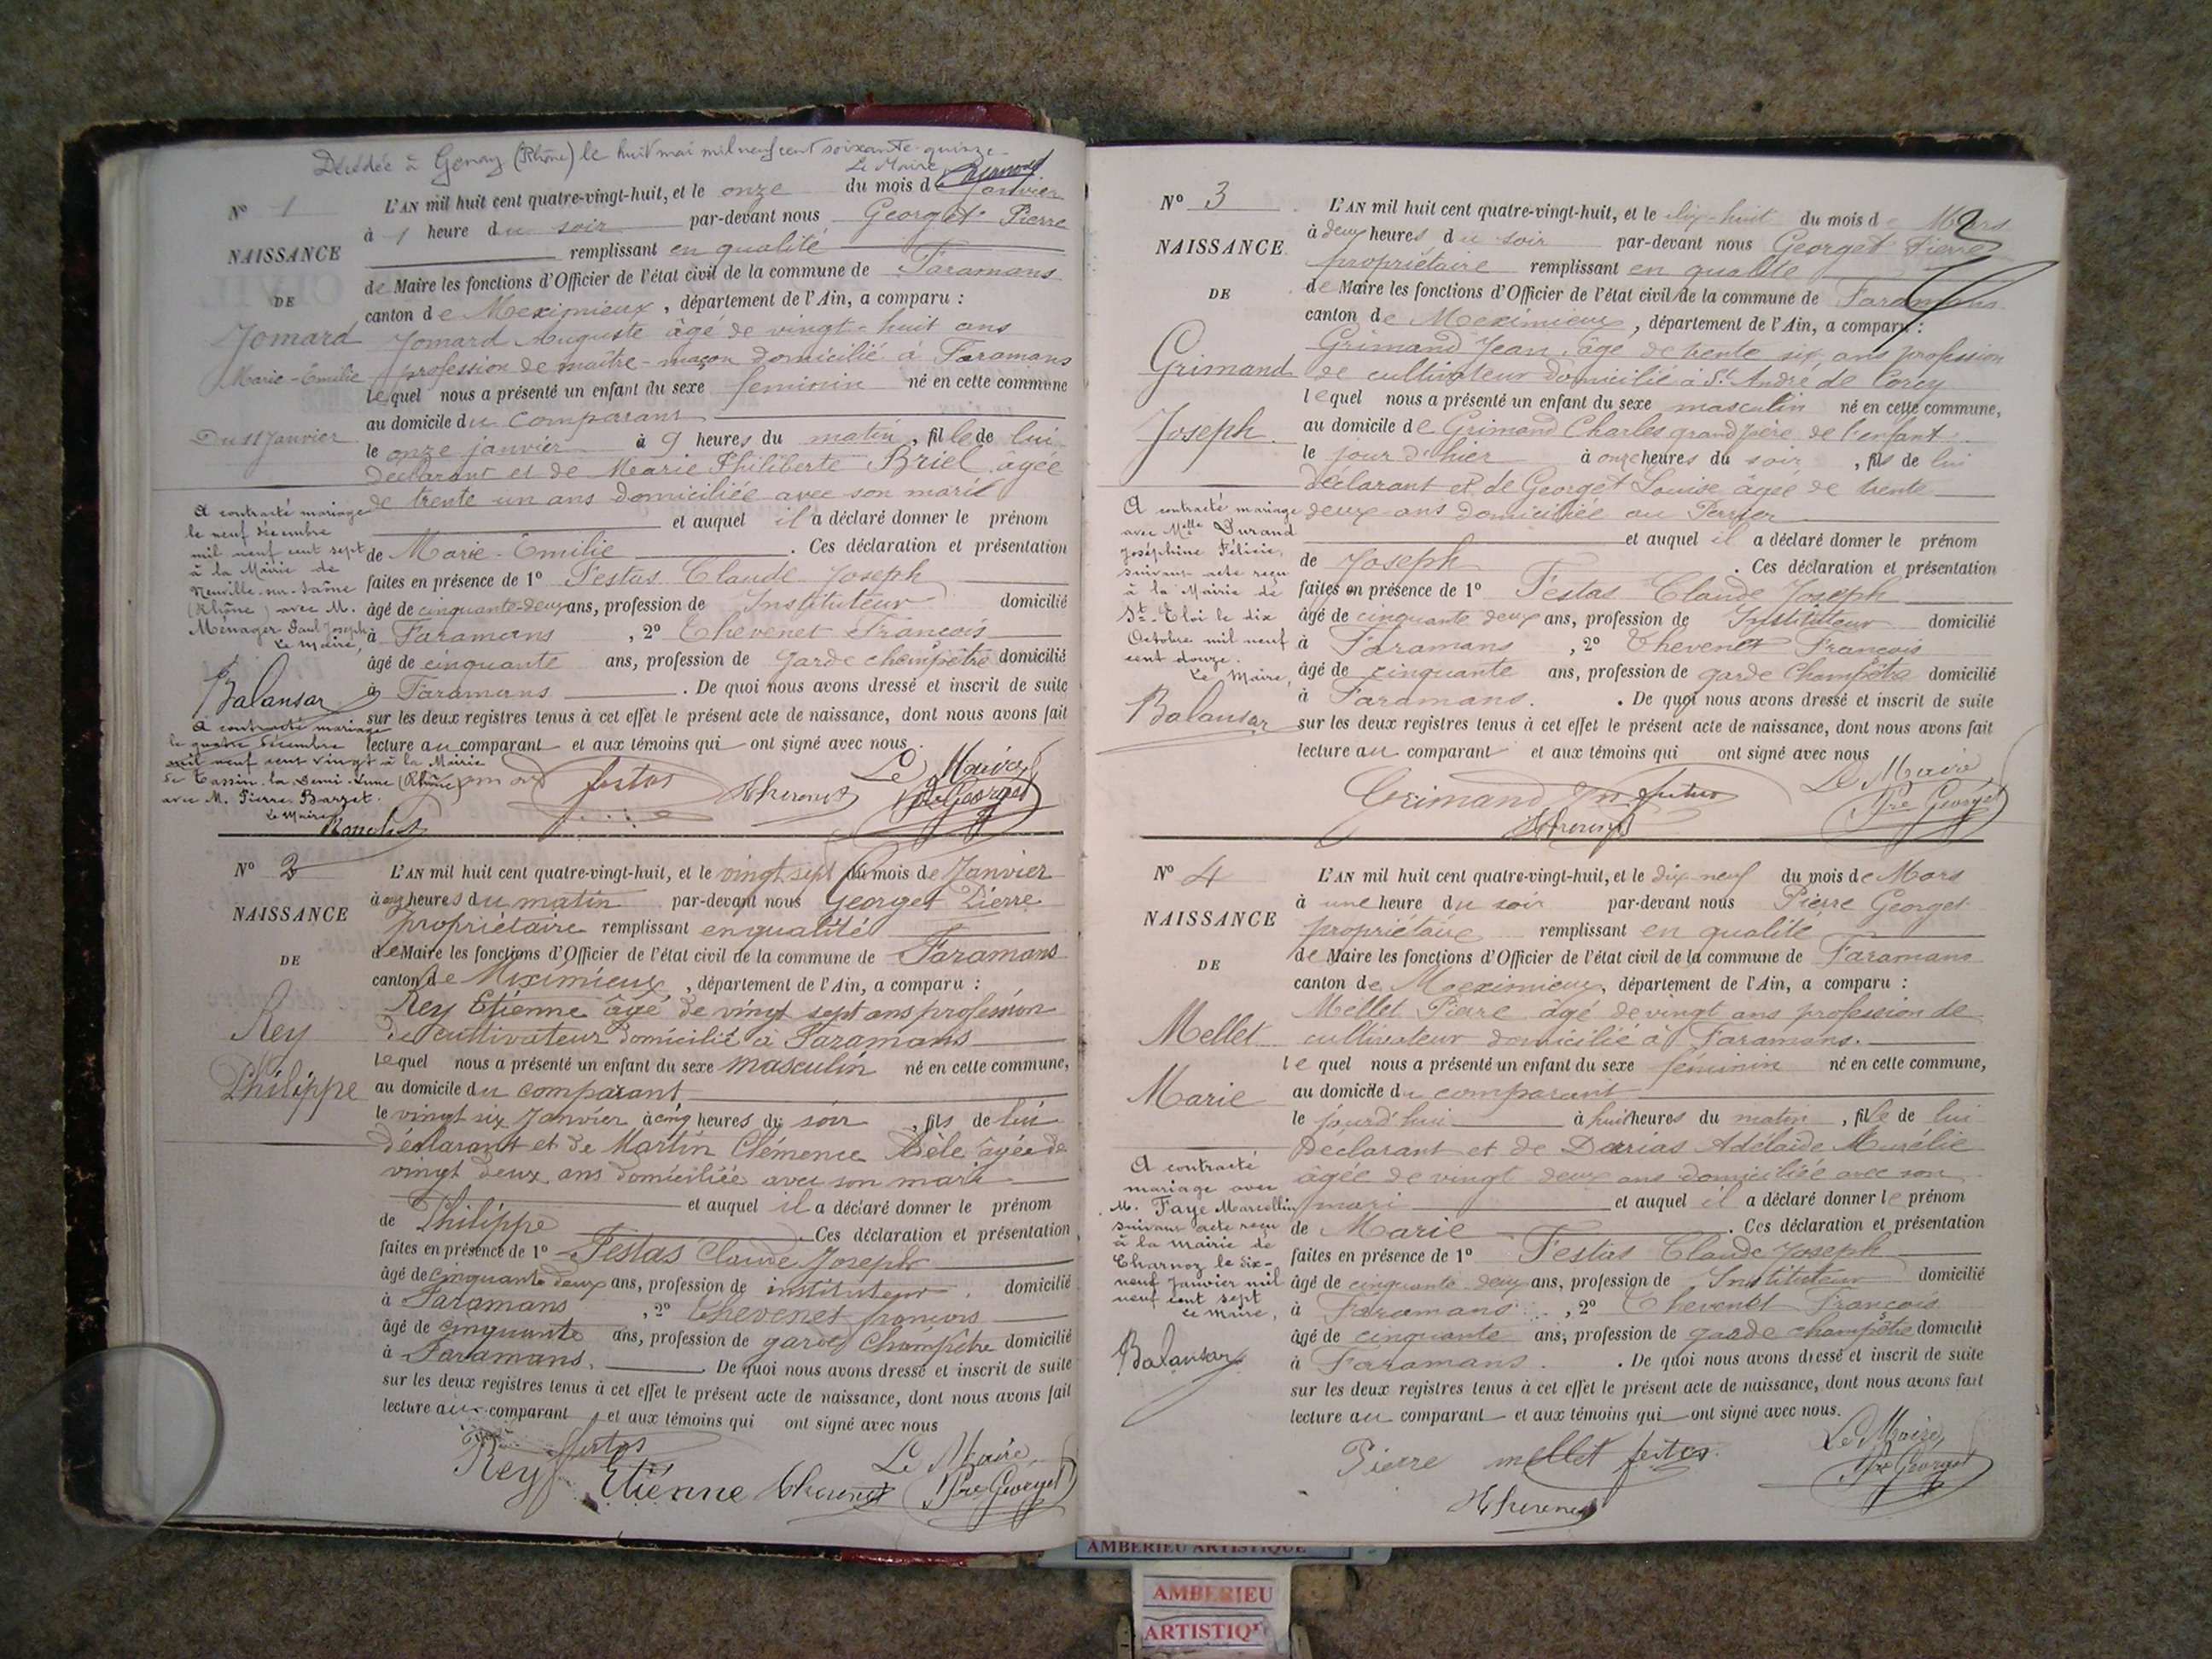 Décédée à Genay (Rhône) le huit mai mil neuf cent soixante-quinze
Le Maire
N° 1
NAISSANCE
DE
Jomard
Marie-Emilie
Du 11 Janvier
A contracté mariage
le neuf décembre
mil neuf cent sept
à la Mairie de
Neuville-sur-Saône
(Rhône) avec M.
Ménager Paul Joseph
Le Maire,
Balansar
A contracté mariage
le quatre décembre
mil neuf cent vingt à la Mairie
de Tassin-la-Demi-Lune (Rhône)
avec M. Pierre Barzet.
Le Maire
L'AN mil huit cent quatre-vingt-huit, et le onze du mois de Janvier
à 1 heure du soir par-devant nous Georget Pierre
remplissant en qualité
de Maire les fonctions d'Officier de l'état civil de la commune de Faramans
canton de Meximieux, département de l'Ain, a comparu :
Jomard Auguste âgé de vingt-huit ans
profession de maître-maçon domicilié à Faramans
lequel nous a présenté un enfant du sexe feminin né en cette commune
au domicile du comparant
le onze janvier à 9 heures du matin, fille de lui
déclarant et de Marie Philiberte Briel âgée
de trente un ans domiciliée avec son mari
et auquel il a déclaré donner le prénom
de Marie-Emilie. Ces déclaration et présentation
faites en présence de 1° Festas Claude Joseph
âgé de cinquante-deux ans, profession de Instituteur domicilié
à Faramans, 2° Thevenet François
âgé de cinquante ans, profession de garde champêtre domicilié
à Faramans. De quoi nous avons dressé et inscrit de suite
sur les deux registres tenus à cet effet le présent acte de naissance, dont nous avons fait
lecture au comparant et aux témoins qui ont signé avec nous.
festas Thevenet Le Maire
Pre Georget
N° 2
NAISSANCE
DE
Rey
Philippe
L'AN mil huit cent quatre-vingt-huit, et le vingt sept du mois de Janvier
à heures du matin par-devant nous Georget Pierre
propriétaire remplissant en qualité
de Maire les fonctions d'Officier de l'état civil de la commune de Faramans
canton de Miximieux, département de l'Ain, a comparu :
Rey Etienne âgé de vingt sept ans profession
de cultivateur domicilié à Faramans
lequel nous a présenté un enfant du sexe masculin né en cette commune,
au domicile du comparant
le vingt six Janvier à cinq heures du soir, fils de lui
déclarant et de Martin Clémence Adèle âgée de
vingt deux ans domiciliée avec son mari
et auquel il a déclaré donner le prénom
de Philippe. Ces déclaration et présentation
faites en présence de 1° Festas Claude Joseph
âgé de cinquante deux ans, profession de instituteur domicilié
à Faramans, 2° Thevenet françois
âgé de cinquante ans, profession de garde Champêtre domicilié
à Faramans. De quoi nous avons dressé et inscrit de suite
sur les deux registres tenus à cet effet le présent acte de naissance, dont nous avons fait
lecture au comparant et aux témoins qui ont signé avec nous
festas Le Maire
Rey Etiénne Thevenet Pre Georget
N° 3
NAISSANCE
DE
Grimand
Joseph.
A contracté mariage
avec Melle Durand
Joséphine Félicie,
suivant acte reçu
à la Mairie de
St-Eloi le dix
Octobre mil neuf
cent douze.
Le Maire,
Balansar
L'AN mil huit cent quatre-vingt-huit, et le dix-huit du mois de Mars
à deux heures du soir par-devant nous Georget Pierre
propriétaire remplissant en qualité
de Maire les fonctions d'Officier de l'état civil de la commune de Faramans
canton de Meximieux, département de l'Ain, a comparu :
Grimand Jean, âgé de trente six ans profession
de cultivateur domicilié à St André de Corcy
lequel nous a présenté un enfant du sexe masculin né en cette commune,
au domicile de Grimand Charles grand père de l'enfant
le jour d'hier à onze heures du soir, fils de lui
déclarant et de Georget Louise âgée de trente
deux ans domiciliée au
et auquel il a déclaré donner le prénom
de Joseph. Ces déclaration et présentation
faites en présence de 1° Festas Claude Joseph
âgé de cinquante deux ans, profession de Instituteur domicilié
à Faramans, 2° Thevenet François
âgé de cinquante ans, profession de garde Champêtre domicilié
à Faramans. De quoi nous avons dressé et inscrit de suite
sur les deux registres tenus à cet effet le présent acte de naissance, dont nous avons fait
lecture au comparant et aux témoins qui ont signé avec nous
Le Maire
Grimand Jn festas Pre Georget
Thevenet
N° 4
NAISSANCE
DE
Mellet
Marie
A contracté
mariage avec
M. Faye Marcellin
suivant acte reçu
à la mairie de
Charnoz le dix-
neuf Janvier mil
neuf cent sept
Le Maire,
Balansar
L'AN mil huit cent quatre-vingt-huit, et le dix-neuf du mois de Mars
à une heure du soir par-devant nous Pierre Georget
propriétaire remplissant en qualité
de Maire les fonctions d'Officier de l'état civil de la commune de Faramans
canton de Meximieux, département de l'Ain, a comparu :
Mellet Pierre âgé de vingt ans profession de
cultivateur domicilié à Faramans.
lequel nous a présenté un enfant du sexe féminin né en cette commune,
au domicile du comparant
le jourd'hui à huit heures du matin, fille de lui
Déclarant et de Darrias Adélaïde Aurélie
âgée de vingt deux ans domiciliée avec son
mari et auquel il a déclaré donner le prénom
de Marie. Ces déclaration et présentation
faites en présence de 1° Festas Claude Joseph
âgé de cinquante deux ans, profession de Instituteur domicilié
à Faramans, 2° Thevenet François
âgé de cinquante ans, profession de garde champêtre domicilié
à Faramans. De quoi nous avons dressé et inscrit de suite
sur les deux registres tenus à cet effet le présent acte de naissance, dont nous avons fait
lecture au comparant et aux témoins qui ont signé avec nous.
Le Maire,
Pierre mellet festas. Pre Georget
Thevenet
AMBERIEU ARTISTIQUE
AMBERIEU
ARTISTIQ